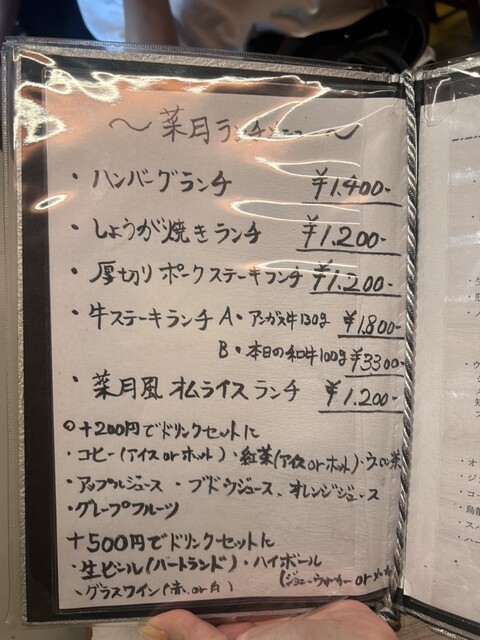 〜菜月ランチメニュー〜
・ハンバーグランチ ¥1.400-
・しょうが焼きランチ ¥1.200-
・厚切りポークステーキランチ ¥1.200-
・牛ステーキランチ A・アンガス牛130g ¥1.800-
B・本日の和牛100g ¥3300-
・菜月風オムライスランチ ¥1.200-
○+200円でドリンクセットに
・コーヒー(アイスorホット)・紅茶(アイスorホット)・ウーロン茶
・アップルジュース・ブドウジュース、オレンジジュース
・グレープフルーツ
+500円でドリンクセットに
・生ビール(ハートランド)・ハイボール
(ジョニーウォーカー or
・グラスワイン(赤、or白)